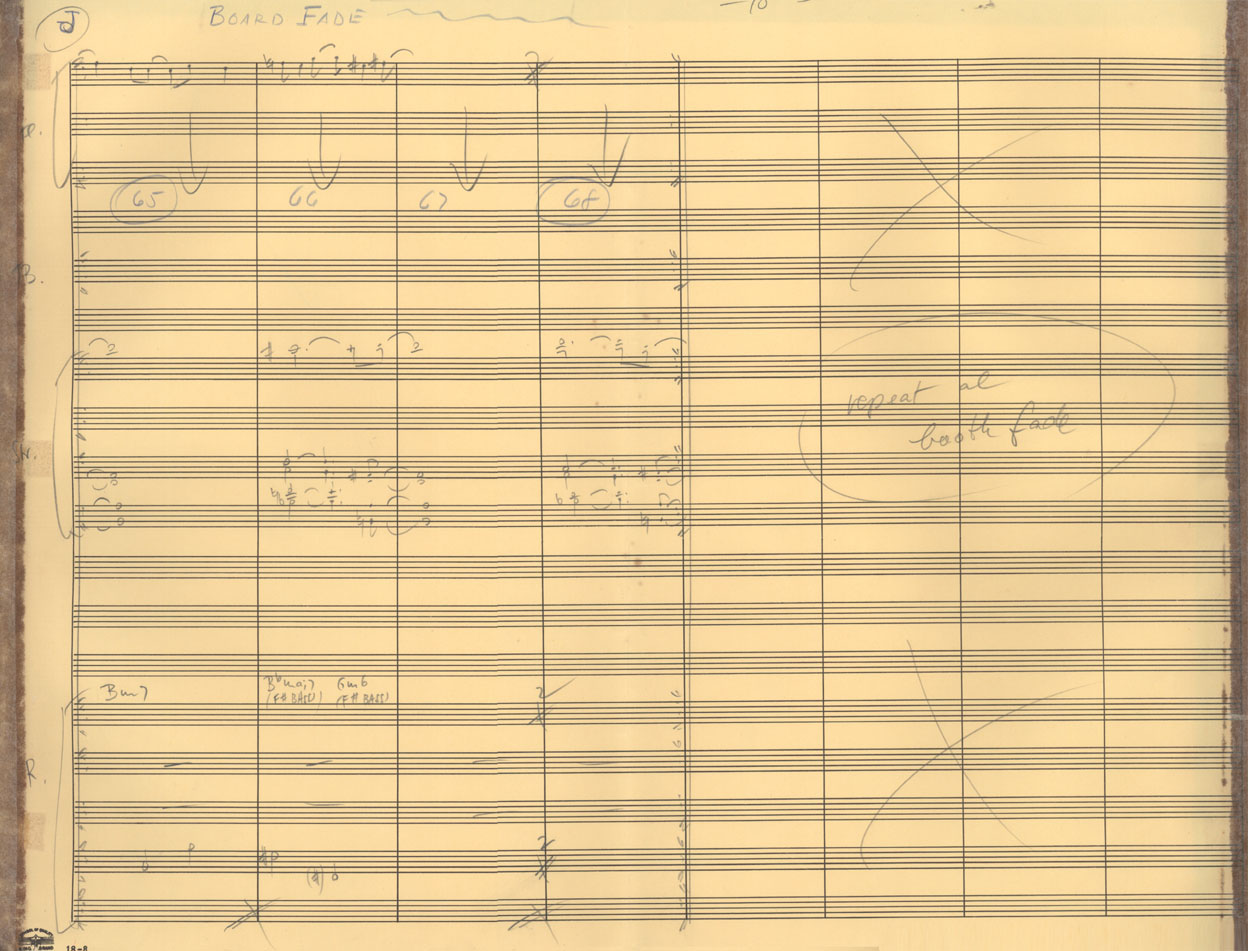 J BOARD FADE
-10-
65 66 67 68
B.
repeat al
booth fade
Bm7 Bbmaj7 Gm6
(F# BASS) (F# BASS)
2
R.
2
18-8